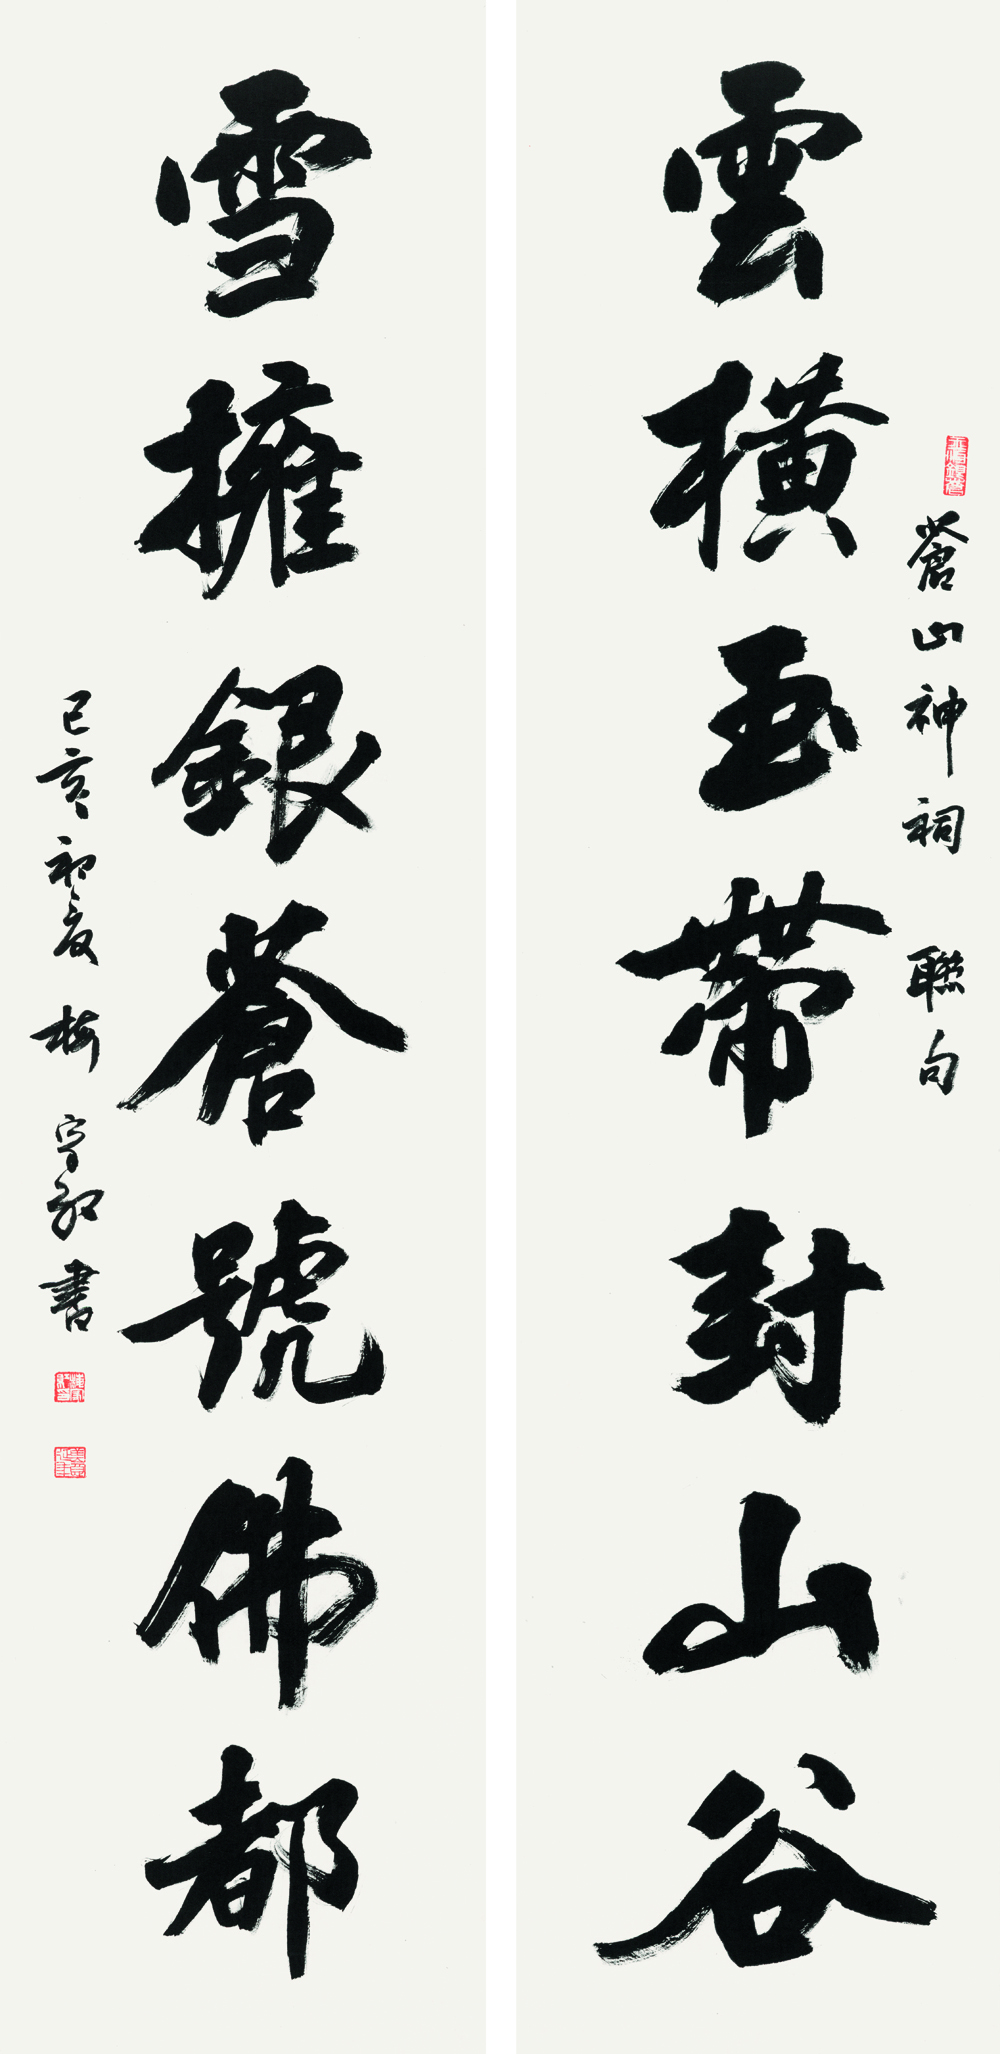 蒼山神祠 聯句
雲橫玉帶封山谷
雪擁銀蒼號佛都
己亥初夏 梅 寧 書